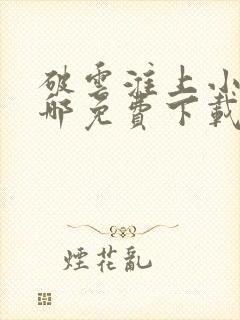 破雲淮上小
那免費下載
煙花亂